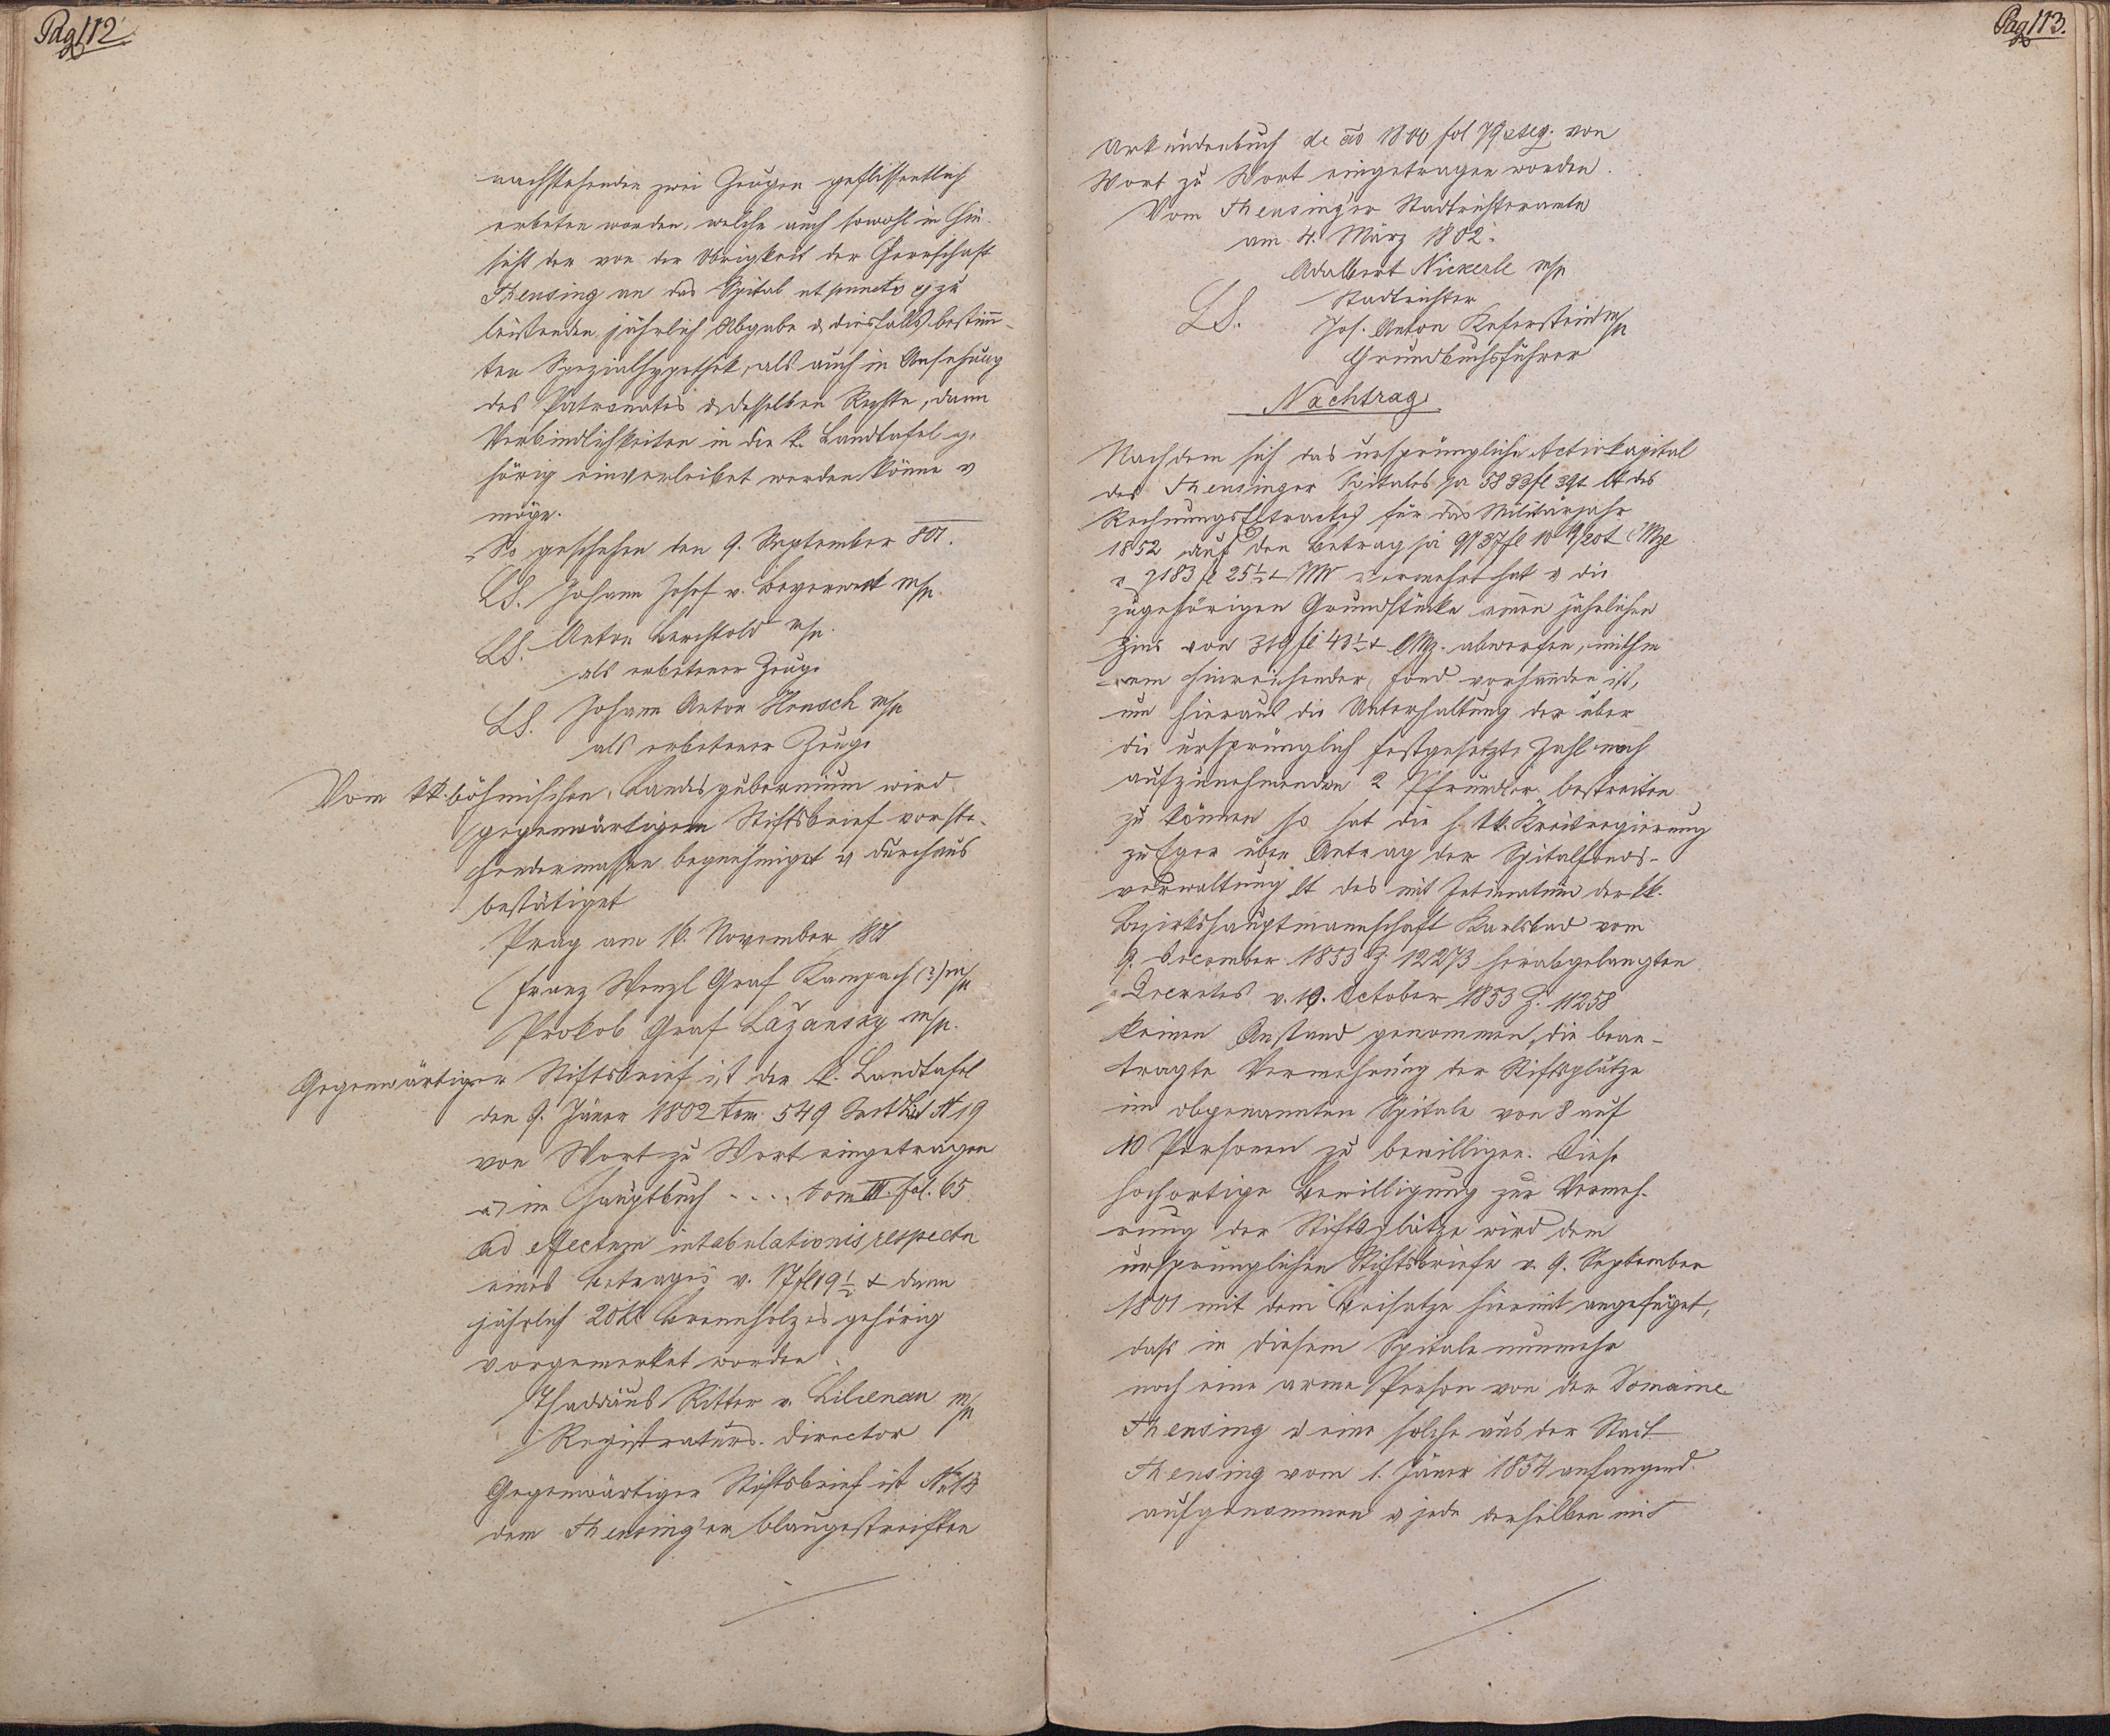 Pag 112
nachstehenden zwei Zeugen geflissentlich
erbeten worden, welche auch sowohl in Hin-
sicht der von der Obrigkeit der Herrschaft
Theusing an das Spital ut puncto zu
leistenden jährlich Abgabe & diesfalls bestimm-
ten Spezialhypothek, als auch in Ansehung
des Patronates & desselben Rechte, dann
Verbindlichkeiten in die k. Landtafel ge-
hörig einverleibet werden könne &
möge.
So geschehen den 9. September 801.
LS. Johann Josef v. Beyerweck m/p
LS. Anton Berchtold m/p.
als erbetener Zeuge
LS. Johann Anton Hensch m/p
als erbetener Zeuge
Vom kk. böhmischen Landesgubernium wird
gegenwärtigem Stiftsbrief vorste-
hendermassen begnehmiget & durchaus
bestätiget
Prag am 16. November 1801
Franz Wenzl Graf Kampach (?) m/p
Prokob Graf Lažansky m/p.
Gegenwärtiger Stiftsbrief ist der k. Landtafel
den 9. Jäner 1802 tom. 549 Lit 19
von Wort zu Wort eingetragen
& im Hauptbuch .... tom III. fol. 65
ad effectum intabulationis respectu
eines Betrages v. 17 fl 19 ½ x dann
jährlich 20 Kl Brennholzes gehörig
vorgemerket worden.
Thaddäus Ritter v. Lilienau m/p
Registraturs-Director
Gegenwärtiger Stiftsbrief ist
dem Theusing'er blaugestreiften
Pag 113.
Urkundenbuch de ao 1800 fol 79 et seq. von
Wort zu Wort eingetragen worden.
Vom Theusing'er Stadtrichteramte
am 4. März 1802.
Adalbert Nickerle m/p
Stadtrichter
LS. Jos. Anton Keferstein m/p
Grundbuchsführer
Nachtrag
Nachdem sich das ursprüngliche Activkapital
des Theusinger Spitales pa 5893 fl 39 x lt des
Rechnungs Extractes für das Militärjahr
1852 auf den Betrag pa 9737 fl 10 x CMze
& 7183 fl 25 ½ x WW vermehrt hat & die
zugehörigen Grundstücke einen jährlichen
Zins von 319 fl 43 ½ x CMz. abwerfen, mithin
ein hinreichender Fond vorhanden ist,
um hieraus die Unterhaltung der über
die ursprünglich festgesetzte Zahl noch
aufzunehmenden 2 Pfründler bestreiten
zu können so hat die h. kk. Kreisregierung
zu Eger über Antrag der Spitalfonds-
verwaltung lt des mit Intimatum der kk.
Bezirkshauptmannschaft Karlsbad vom
9. December 1853 Z. 12273 herabgelangten
Decretes v. 19. October 1853 Z. 11258
keinen Anstand genommen, die bean-
tragte Vermehrung der Stiftsplätze
im obgenannten Spitale von 8 auf
10 Personen zu bewilligen. Diese
hochortige Bewilligung zur Vermeh-
rung der Stiftsplätze wird dem
ursprünglichen Stiftsbriefe v. 9. September
1801 mit dem Beisatze hiermit angefüget,
dass in diesem Spitale nunmehr
noch eine arme Person von der Domaine
Theusing & eine solche aus der Stadt
Theusing vom 1. Jäner 1854 anfangend
aufgenommen & jede derselben mit